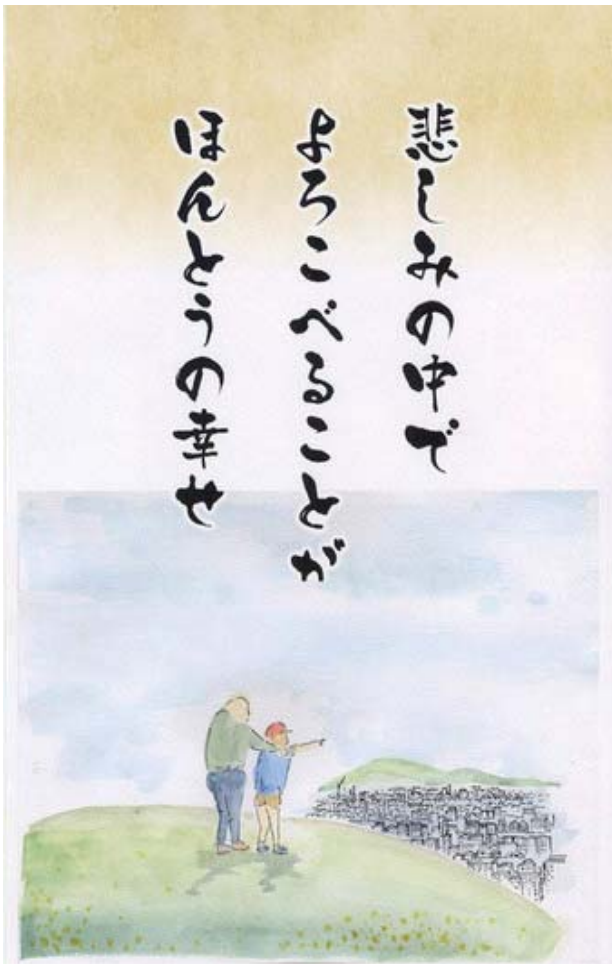 悲しみの中で
よろこべることが
ほんとうの幸せ